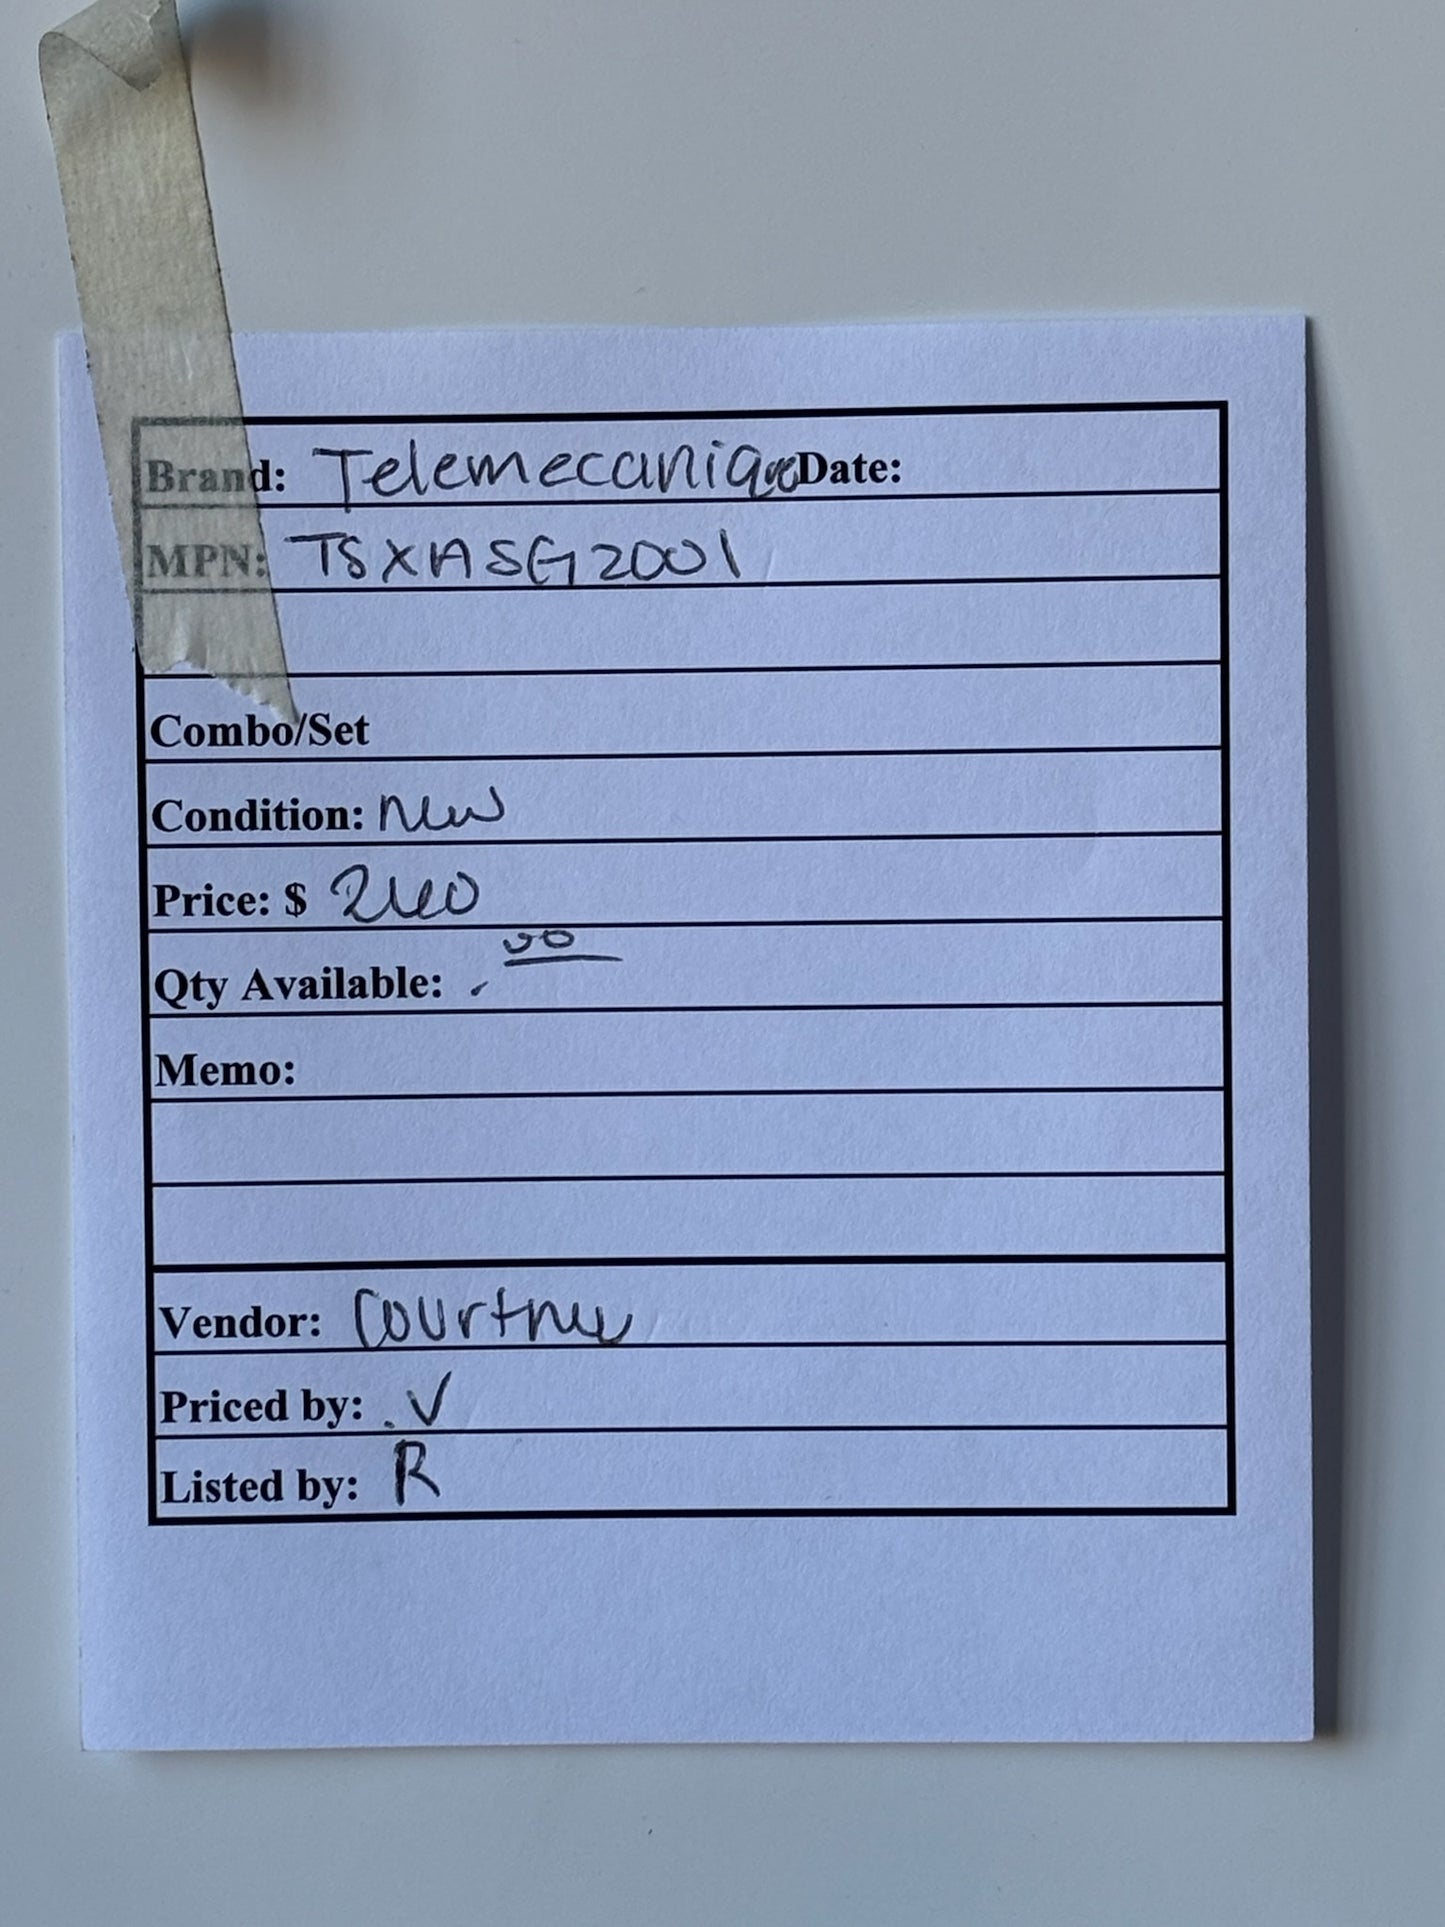 Brand: Telemecanique Date:
MPN: TSXASG2001
Combo/Set
Condition: new
Price: $ 240
00
Qty Available:
Memo:
Vendor: Courtney
Priced by: V
Listed by: R